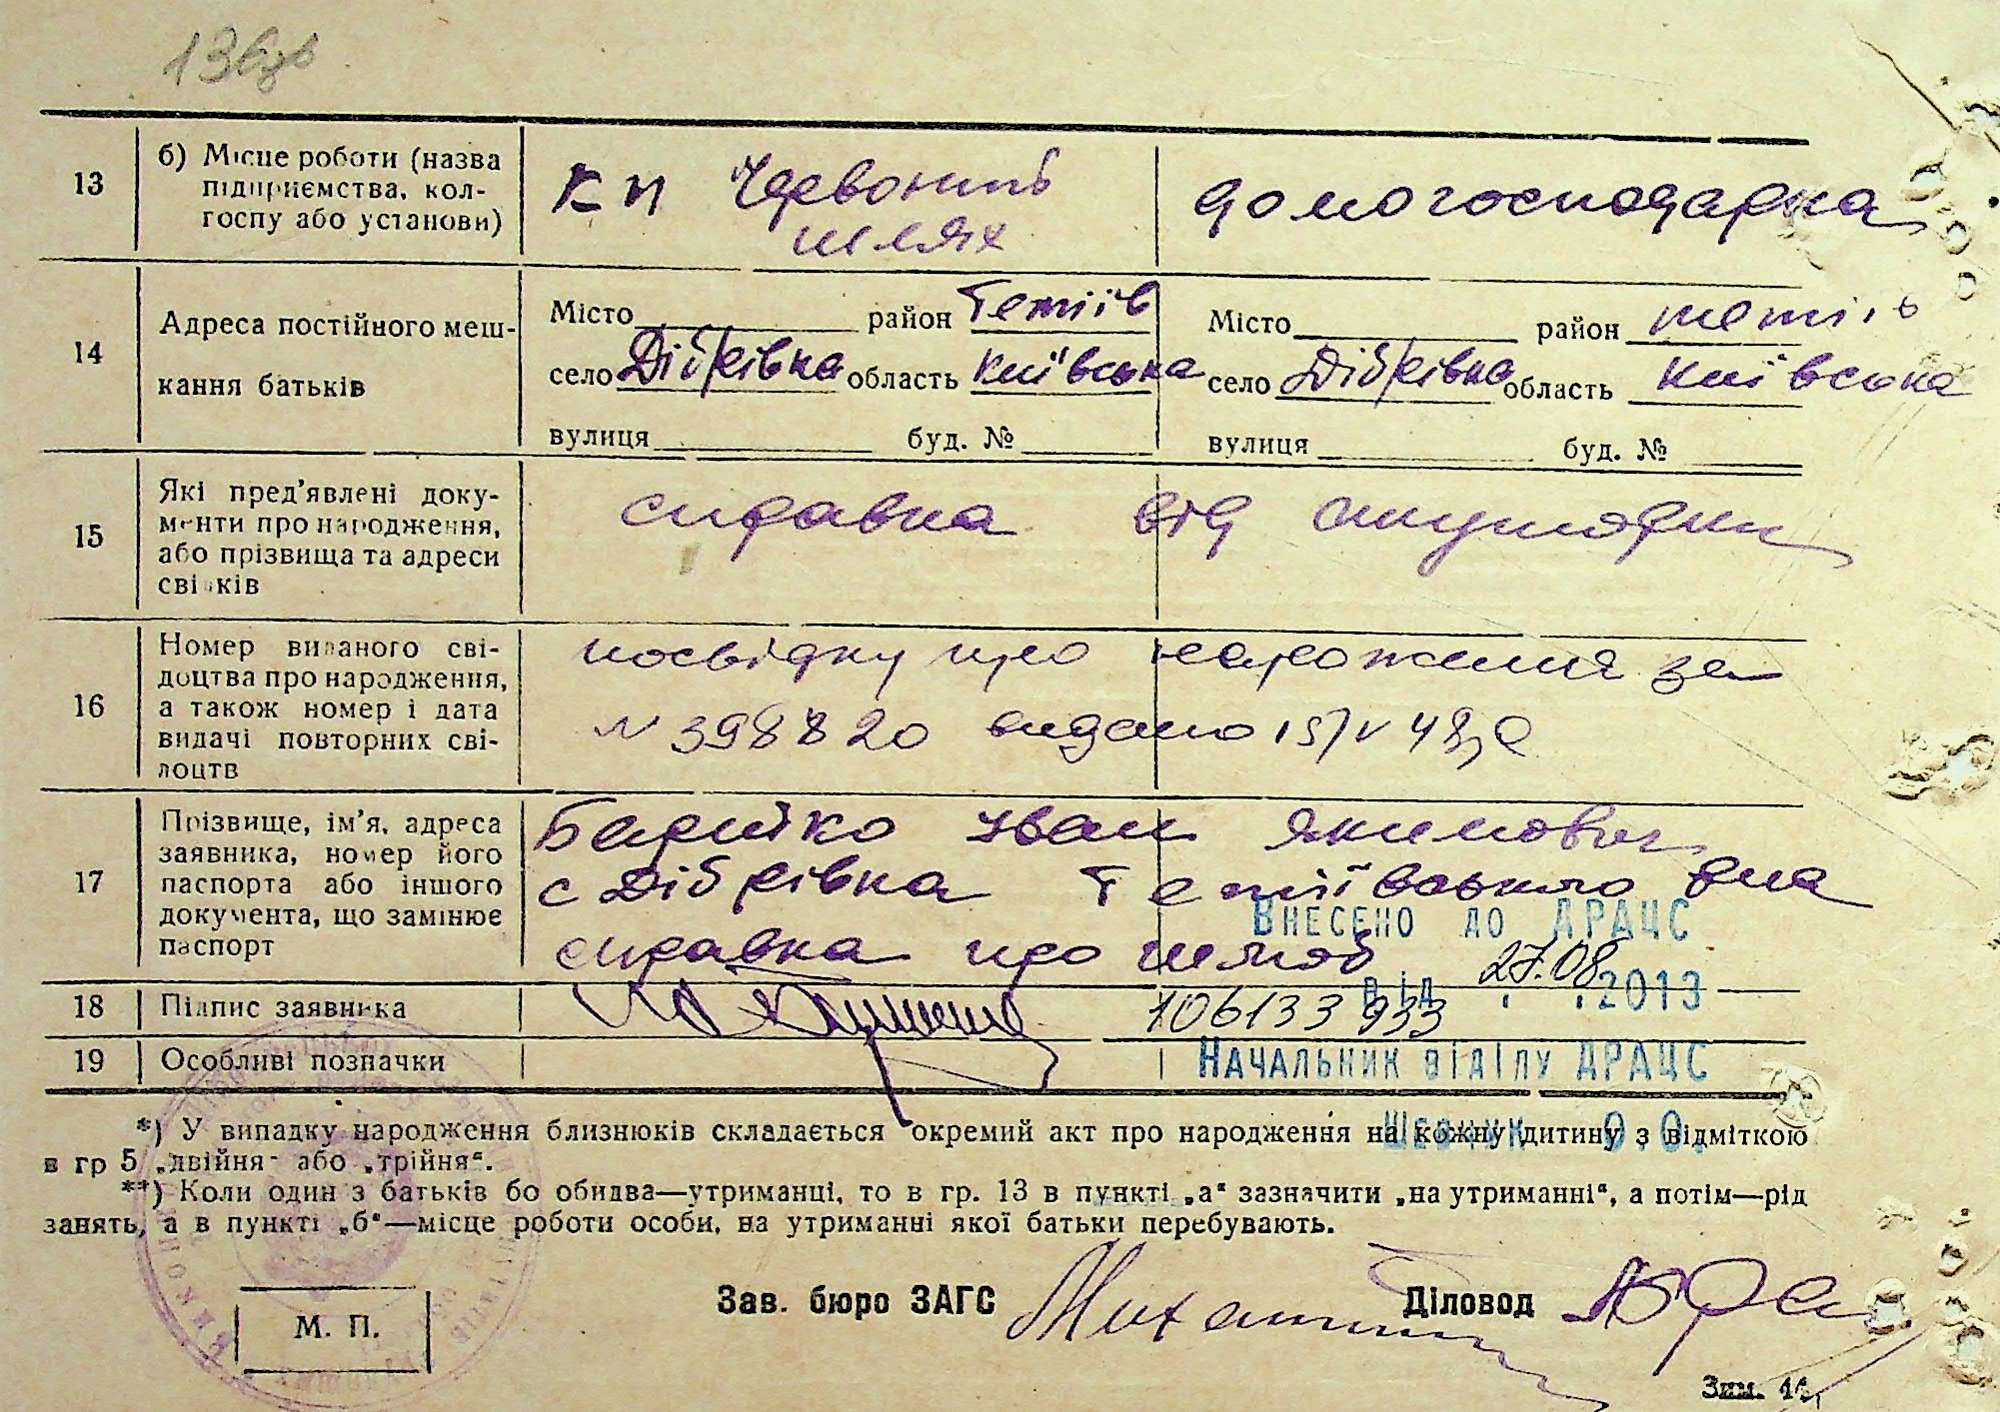 13
б) Місце роботи (назва
підприємства, кол-
госпу або установи)
КП Червоний
шлях
домогосподарка
14
Адреса постійного меш-
кання батьків
Місто район Тетіїв
село Дібрівка область Київська
вулиця буд. №
Місто район Тетіїв
село Дібрівка область Київська
вулиця буд. №
15
Які пред'явлені доку-
менти про народження,
або прізвища та адреси
свідків
справка від акушорки
16
Номер виданого сві-
доцтва про народження,
а також номер і дата
видачі повторних сві-
доцтв
посвідку про народження за
№ 398820 видано 15/V 48 р
17
Прізвище, ім'я, адреса
заявника, номер його
паспорта або іншого
документа, що замінює
паспорт
Іван Якимович
с Дібрівка Тетіївського р-на
справка про шлюб
Внесено до ДРАЦС
від 27.08.2013
106133933
Начальник відділу ДРАЦС
Шевчук О.О.
18
Підпис заявника
19
Особливі позначки
*) У випадку народження близнюків складається окремий акт про народження на кожну дитину з відміткою
в гр 5 „двійня" або „трійня".
**) Коли один з батьків бо обидва—утриманці, то в гр. 13 в пункті „а" зазначити „на утриманні", а потім—рід
занять, а в пункті „б"—місце роботи особи, на утриманні якої батьки перебувають.
М. П.
Зав. бюро ЗАГС
Діловод